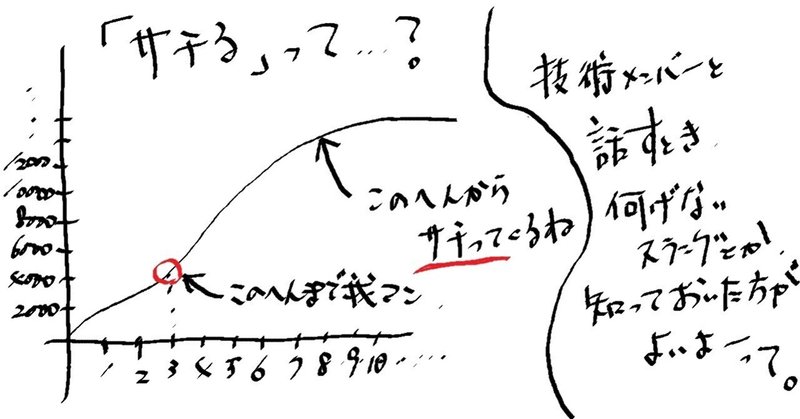 「サチる」って…?
このへんから
サチってくるね
このへんまで我マン
12000
10000
8000
6000
4000
2000
1 2 3 4 5 6 7 8 9 10 ……
技術メンバーと
話すとき
何げない
スラングとか
知っておいた方が
よいよーって。